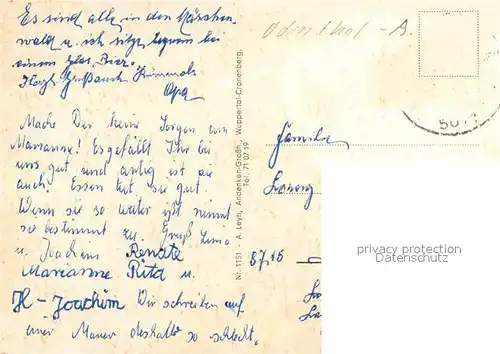 Es sind alle in den Märchen-
wald u. ich sitze bequem bei
einem Glas Bier.
Herzl. Grüße auch
Opa
Mache Dir keine Sorgen um
Marianne! Es gefällt Ihr bei
uns gut und artig ist sie
auch. Essen tut sie gut.
Wenn sie so weiter ißt nimmt
sie bestimmt zu. Gruß
u. Joachim Renate
Marianne Rita u.
H-Joachim Wir schreiben auf
einer Mauer deshalb so schlecht.
Nr. 1151 - A. Leyh, Andenken-Großh., Wuppertal-Cronenberg,
Tel. 71 07 19
Odenthal - A.
Familie
8715
privacy protection
Datenschutz